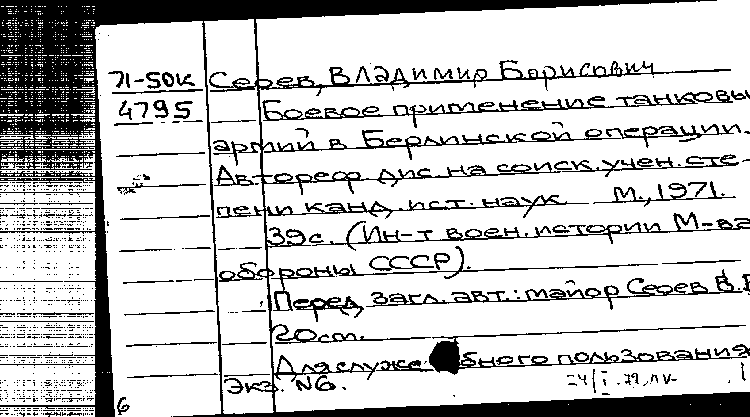 71-50к Сеоев, Владимир Борисович
4795 Боевое применение танковы
армий в Берлинской операции.
Автореф. дис. на соиск. учен. сте-
пени канд. ист. наук М., 1971.
39с. (Ин-т воен. истории М-ва
обороны СССР).
Перед загл. авт.: майор Сеоев В.Б
20см.
Для служебного пользования
Экз. №6.
6